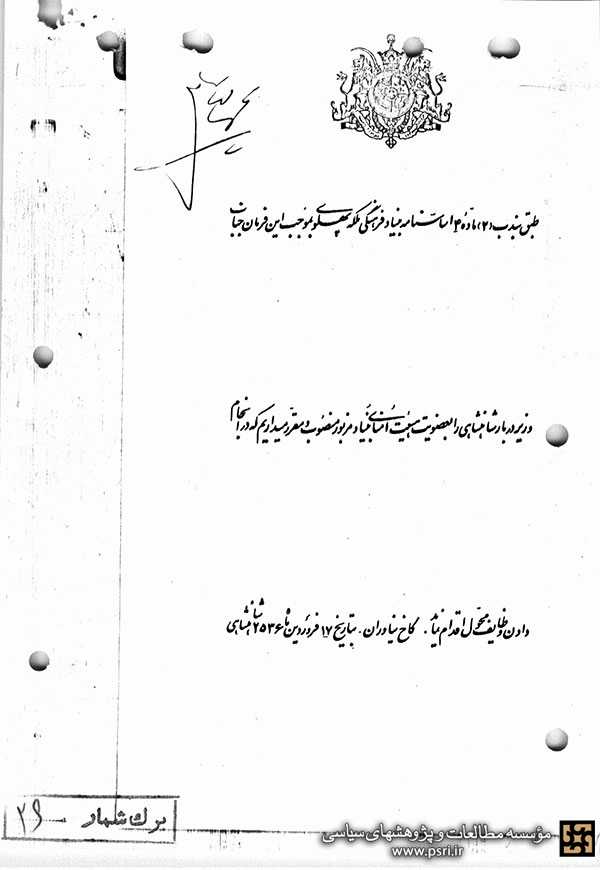 طبق بند ب (۲) مادهٔ ۴ اساسنامه بنیاد فرهنگی ملکه پهلوی بموجب این فرمان جناب
وزیر دربار شاهنشاهی را بعضویت هیئت امنای بنیاد مزبور منصوب و مقرر میداریم که در انجام
دادن وظایف محول اقدام نماید. کاخ نیاوران. بتاریخ ۱۷ فروردین ماه ۲۵۳۶ شاهنشاهی
برگ شمار
مؤسسه مطالعات و پژوهشهای سیاسی
www.psri.ir